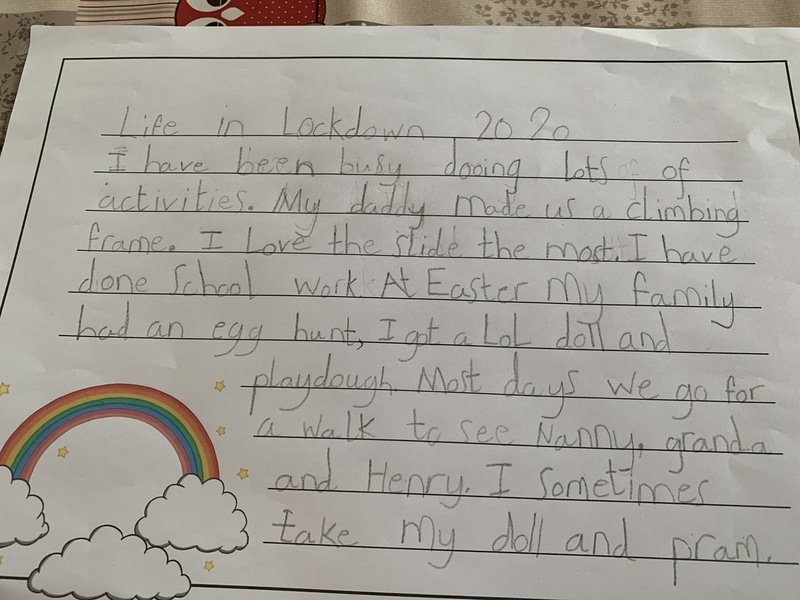 Life in Lockdown 2020
I have been busy dooing lots of
activities. My daddy made us a climbing
frame. I Love the slide the most. I have
done School work At Easter My family
had an egg hunt, I got a LoL doll and
playdough. Most days we go for
a walk to see Nanny, granda
and Henry. I sometimes
take My doll and pram.